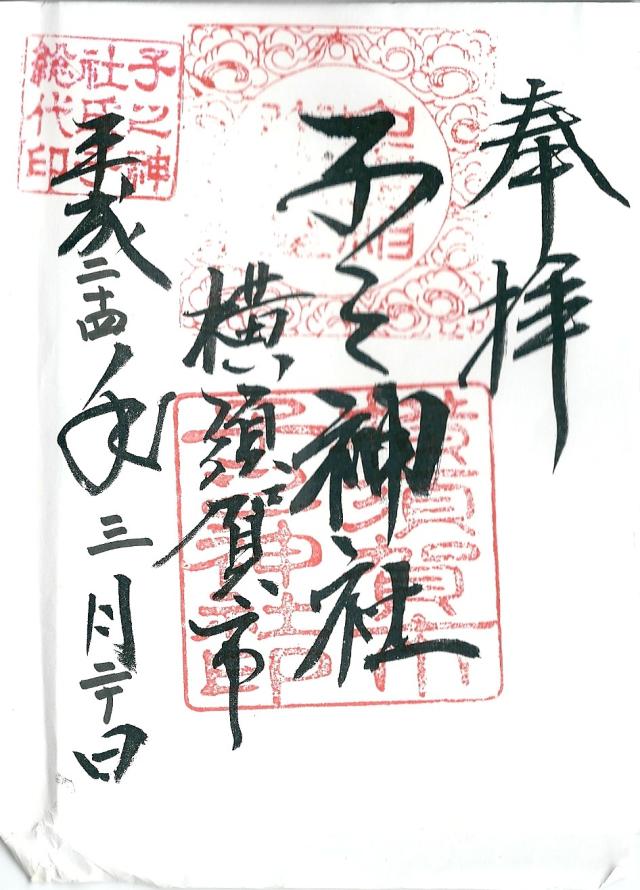 奉拝
子之神社
横須賀市
平成二十四年三月二十日
子之神
社氏子
総代印
横須賀市
子之神社印